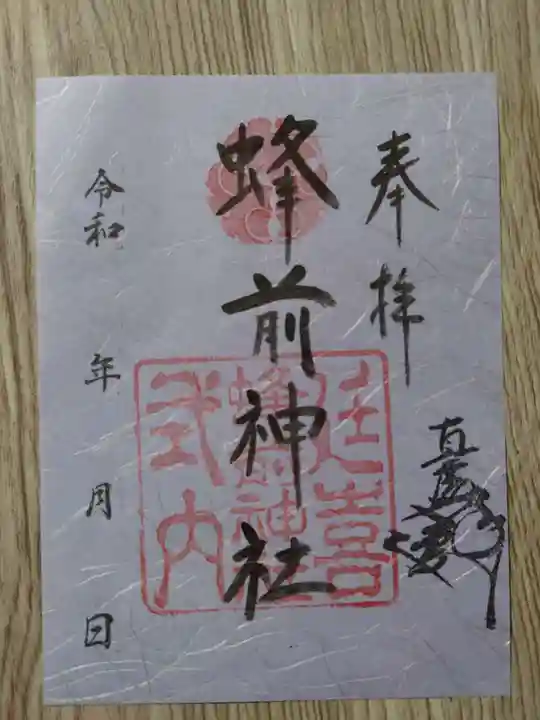 奉拝
直虎
蜂前神社
延喜
蜂前神社
式内
令和 年 月 日